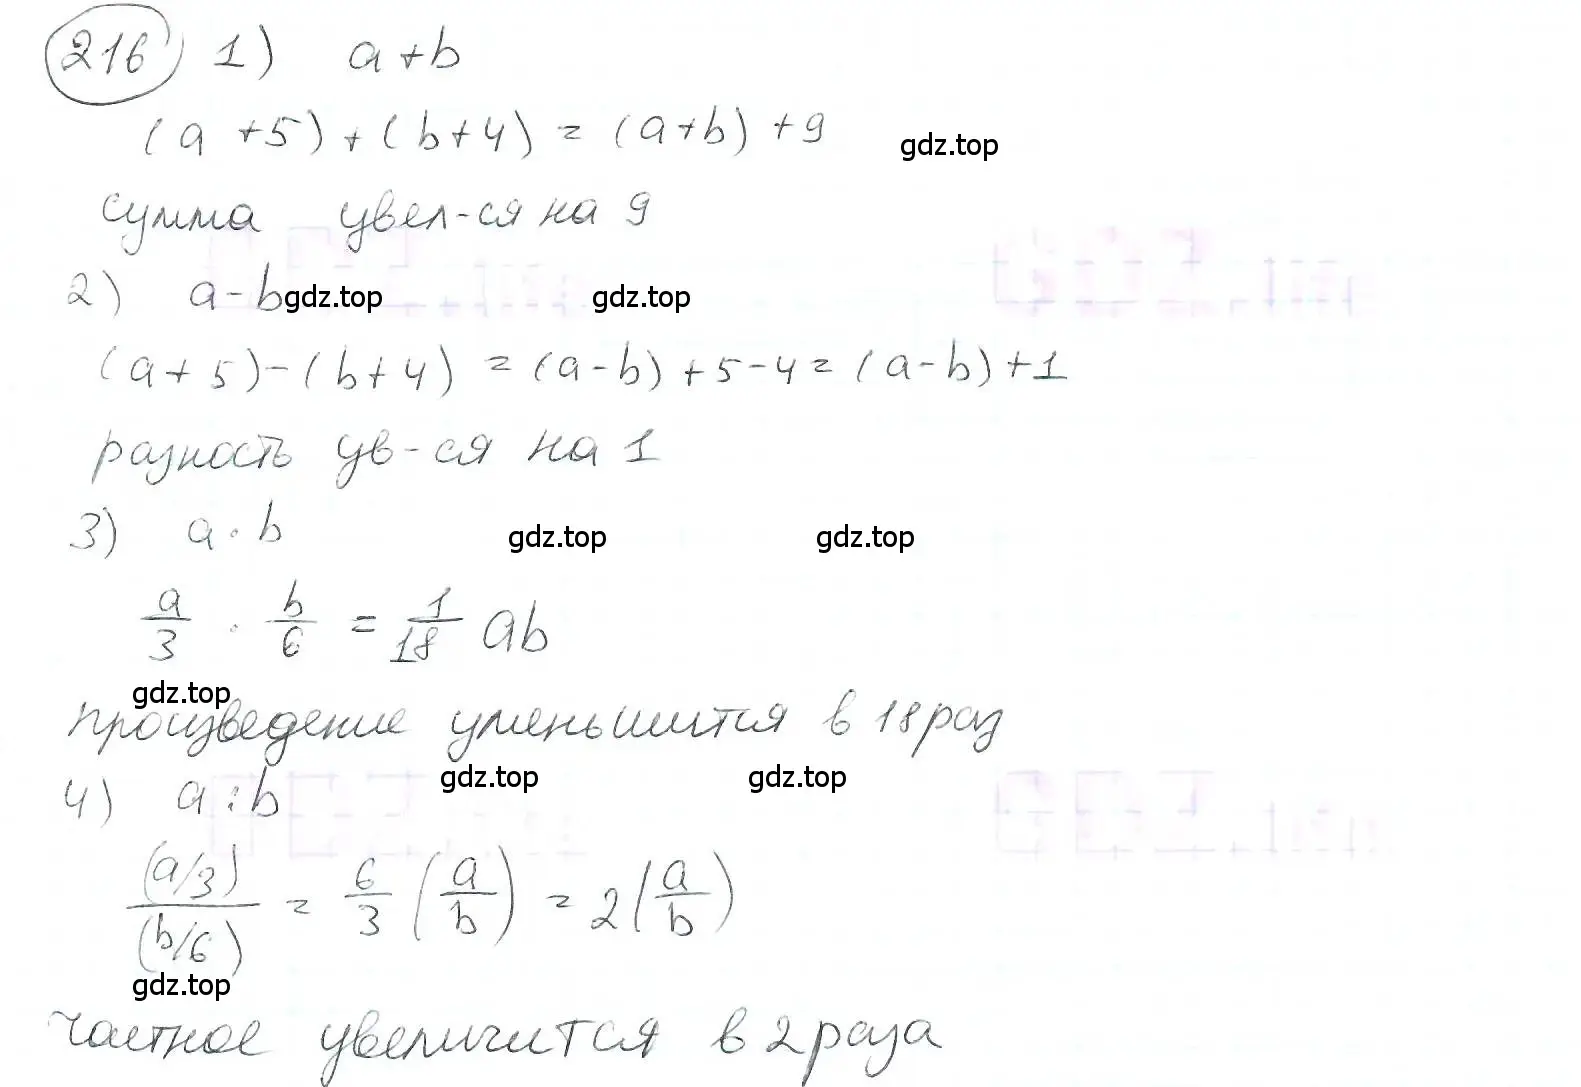 216 1) a+b
(a+5)+(b+4) = (a+b)+9
gdz.top
сумма увел-ся на 9
2) a-b gdz.top gdz.top
(a+5)-(b+4) = (a-b)+5-4 = (a-b)+1
разность ув-ся на 1
3) a·b gdz.top gdz.top
a/3 · b/6 = 1/18 ab
gdz.top
произведение уменьшится в 18 раз
4) a:b gdz.top gdz.top
(a/3)/(b/6) = 6/3 (a/b) = 2(a/b)
gdz.top
частное увеличится в 2 раза